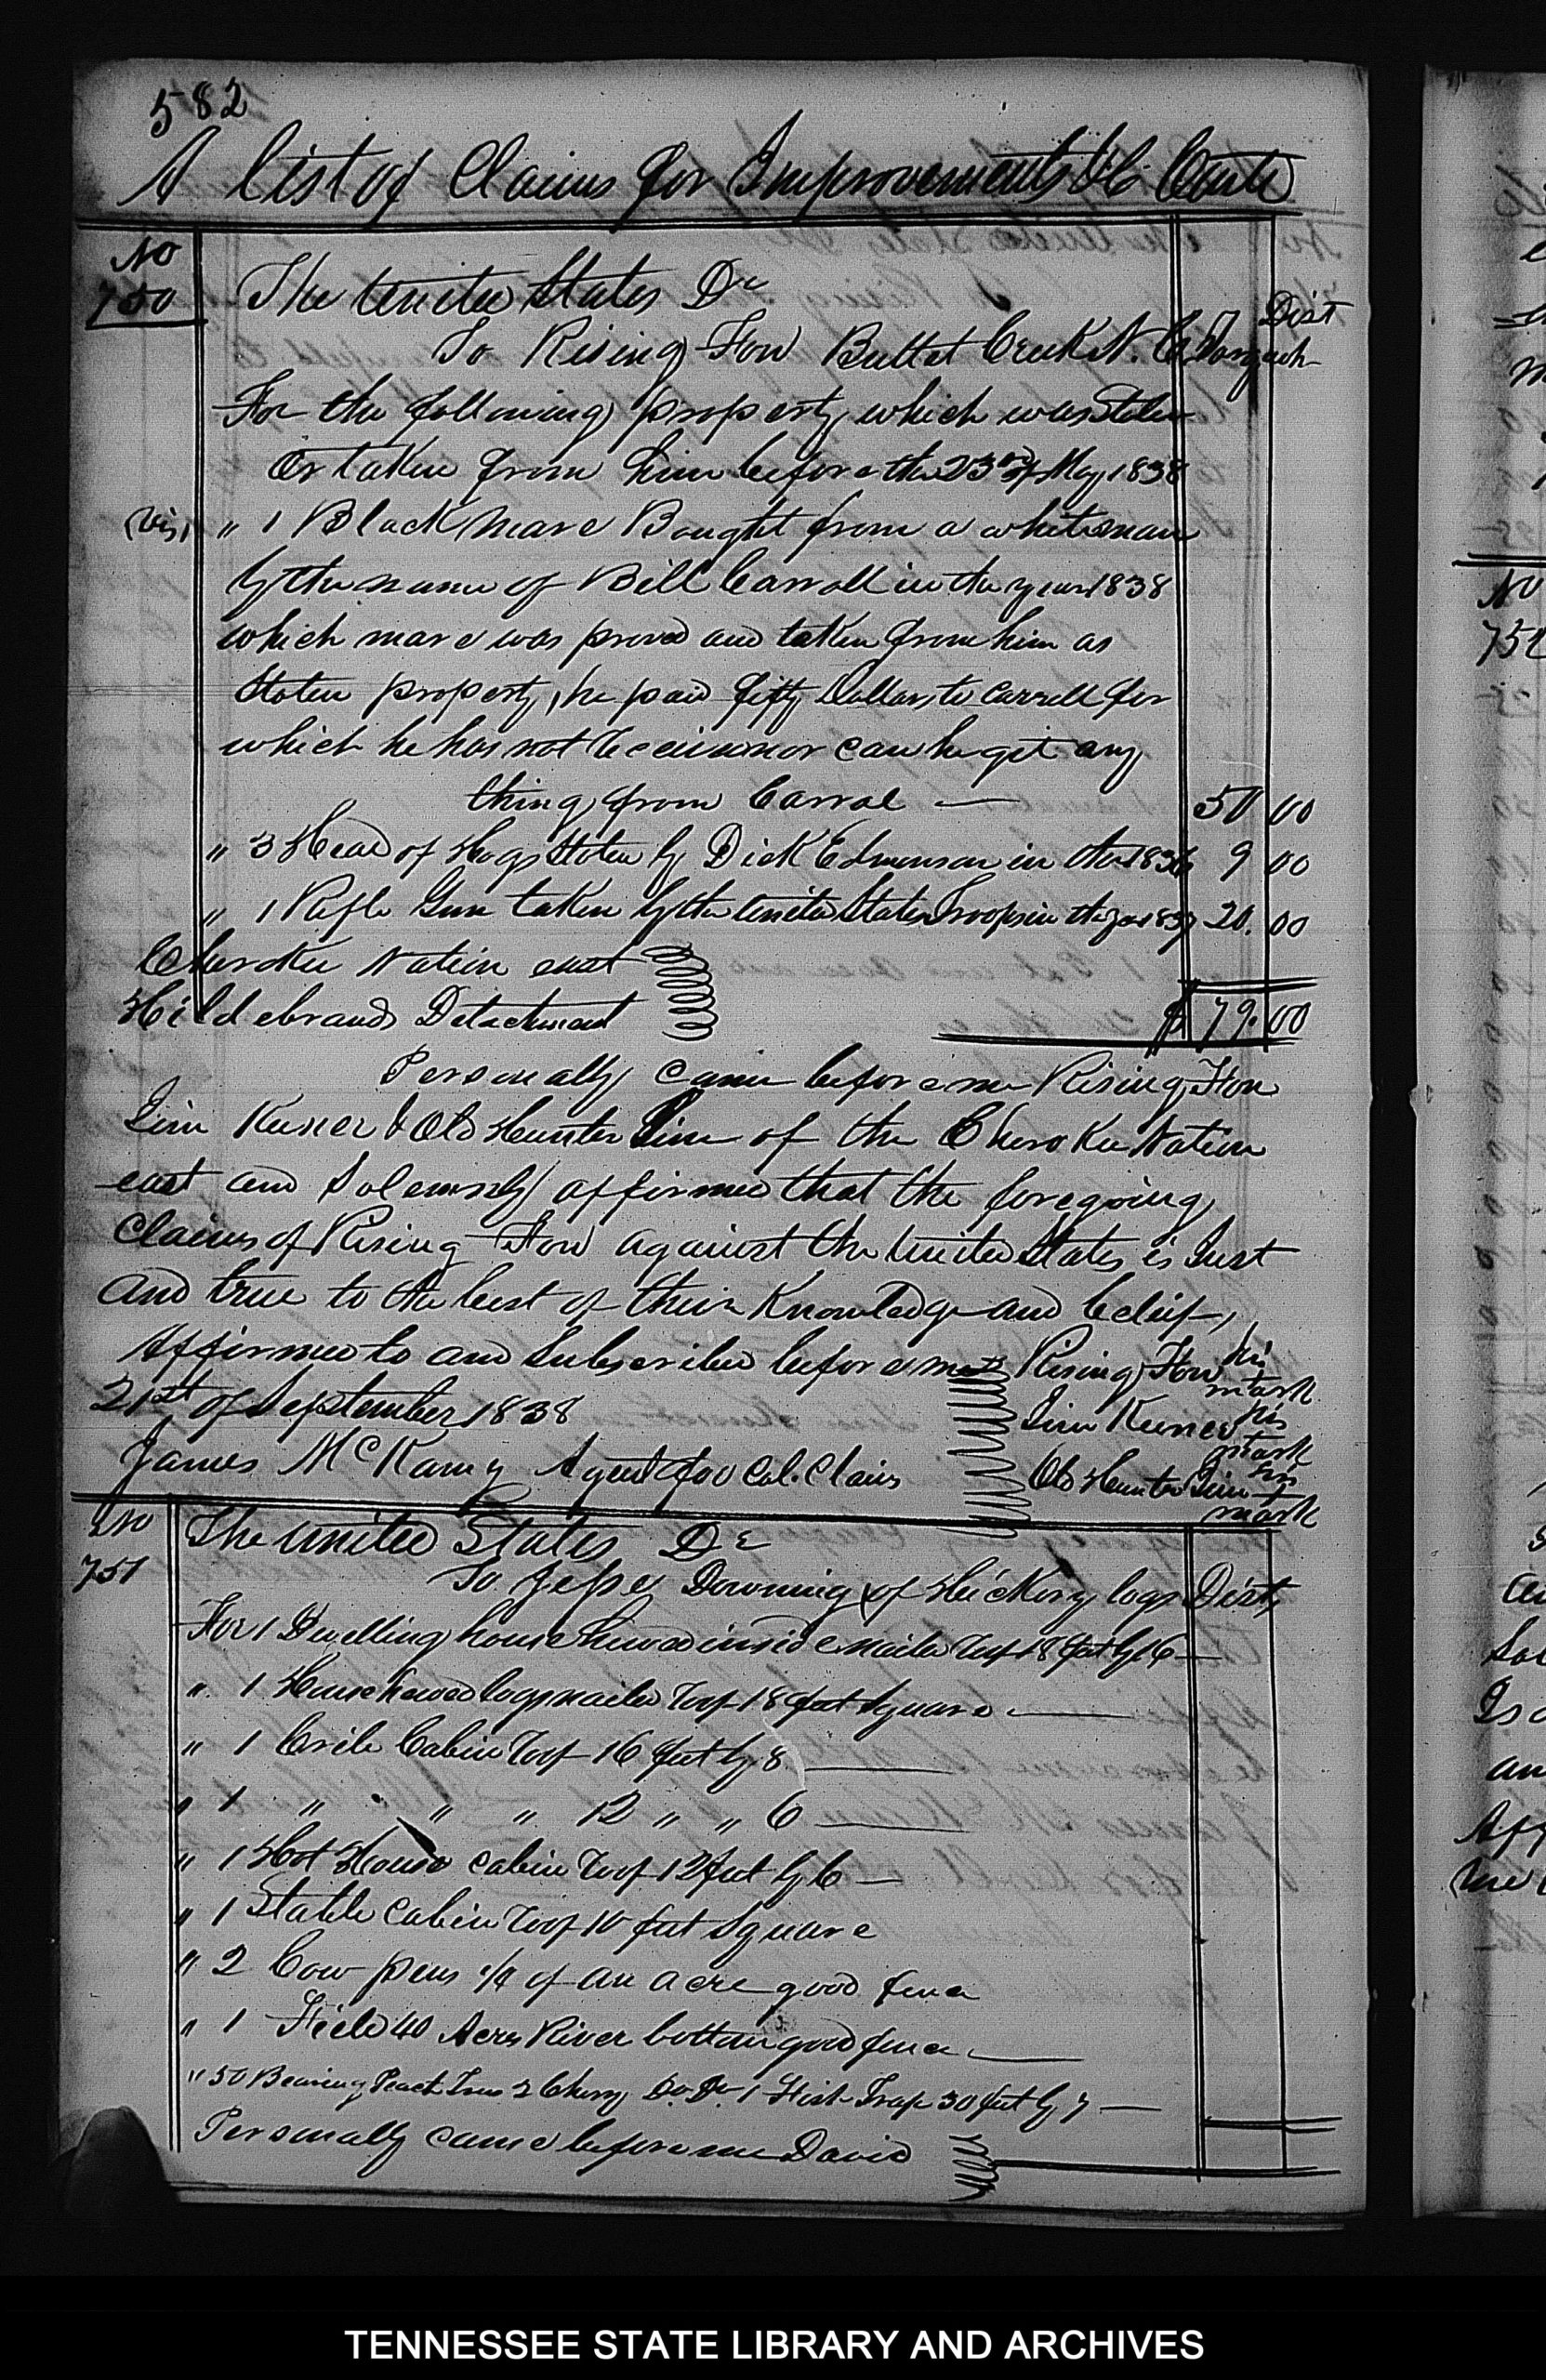 582
A List of Claims for Improvements &c Contd
No
750
The United States Dr
To Rising Fow Buttet Creek N. Ca Dist
For the following property which was Stolen
Or taken from him before the 23rd of May 1838
(Viz) " 1 Black mare Bought from a white man
by the name of Bill Carroll in the year 1838
which mare was proved and taken from him as
Stolen property, he paid fifty Dollars to Carrell for
which he has not Received nor can he get any
thing from Carral — 50 00
" 3 Head of Hogs Stolen by Dick Edmunson in the 1836 9 00
" 1 Rifle Gun taken by the United States Troops in the year 1837 20. 00
Cherokee Nation east
Hildebrands Detachment $ 79. 00
Personally came before me Rising Fow
Jim Keener & Old Hunter Jim of the Cherokee Nation
east and Solemnly affirmed that the foregoing
Claims of Rising Fow against the United States is Just
and true to the best of their Knowledge and belief,
Affirmed to and Subscribed before me Rising Fow his mark
21st of September 1838 Jim Keener his mark
James McKamy Agent for Col. Claims Old Hunter Jim his mark
No
751
The United States Dr
To Jesse Downing of Hickory logs Dist,
For 1 Dwelling house hewed inside nailed roof 18 feet by 16 —
" 1 House hewed logs nailed roof 18 feet Square —
" 1 Crib Cabin roof 16 feet by 8 —
" 1 " " " 12 " " 6 —
" 1 Hot House cabin roof 12 feet by 6 —
" 1 Stable Cabin roof 10 feet Square
" 2 Cow pens 1/4 of an acre good fence
" 1 Field 40 Acres River bottom good fence —
" 50 Bearing Peach Trees 2 Cherry Do. Do. 1 Fish Trap 30 feet by 7 —
Personally came before me David
No
752
TENNESSEE STATE LIBRARY AND ARCHIVES